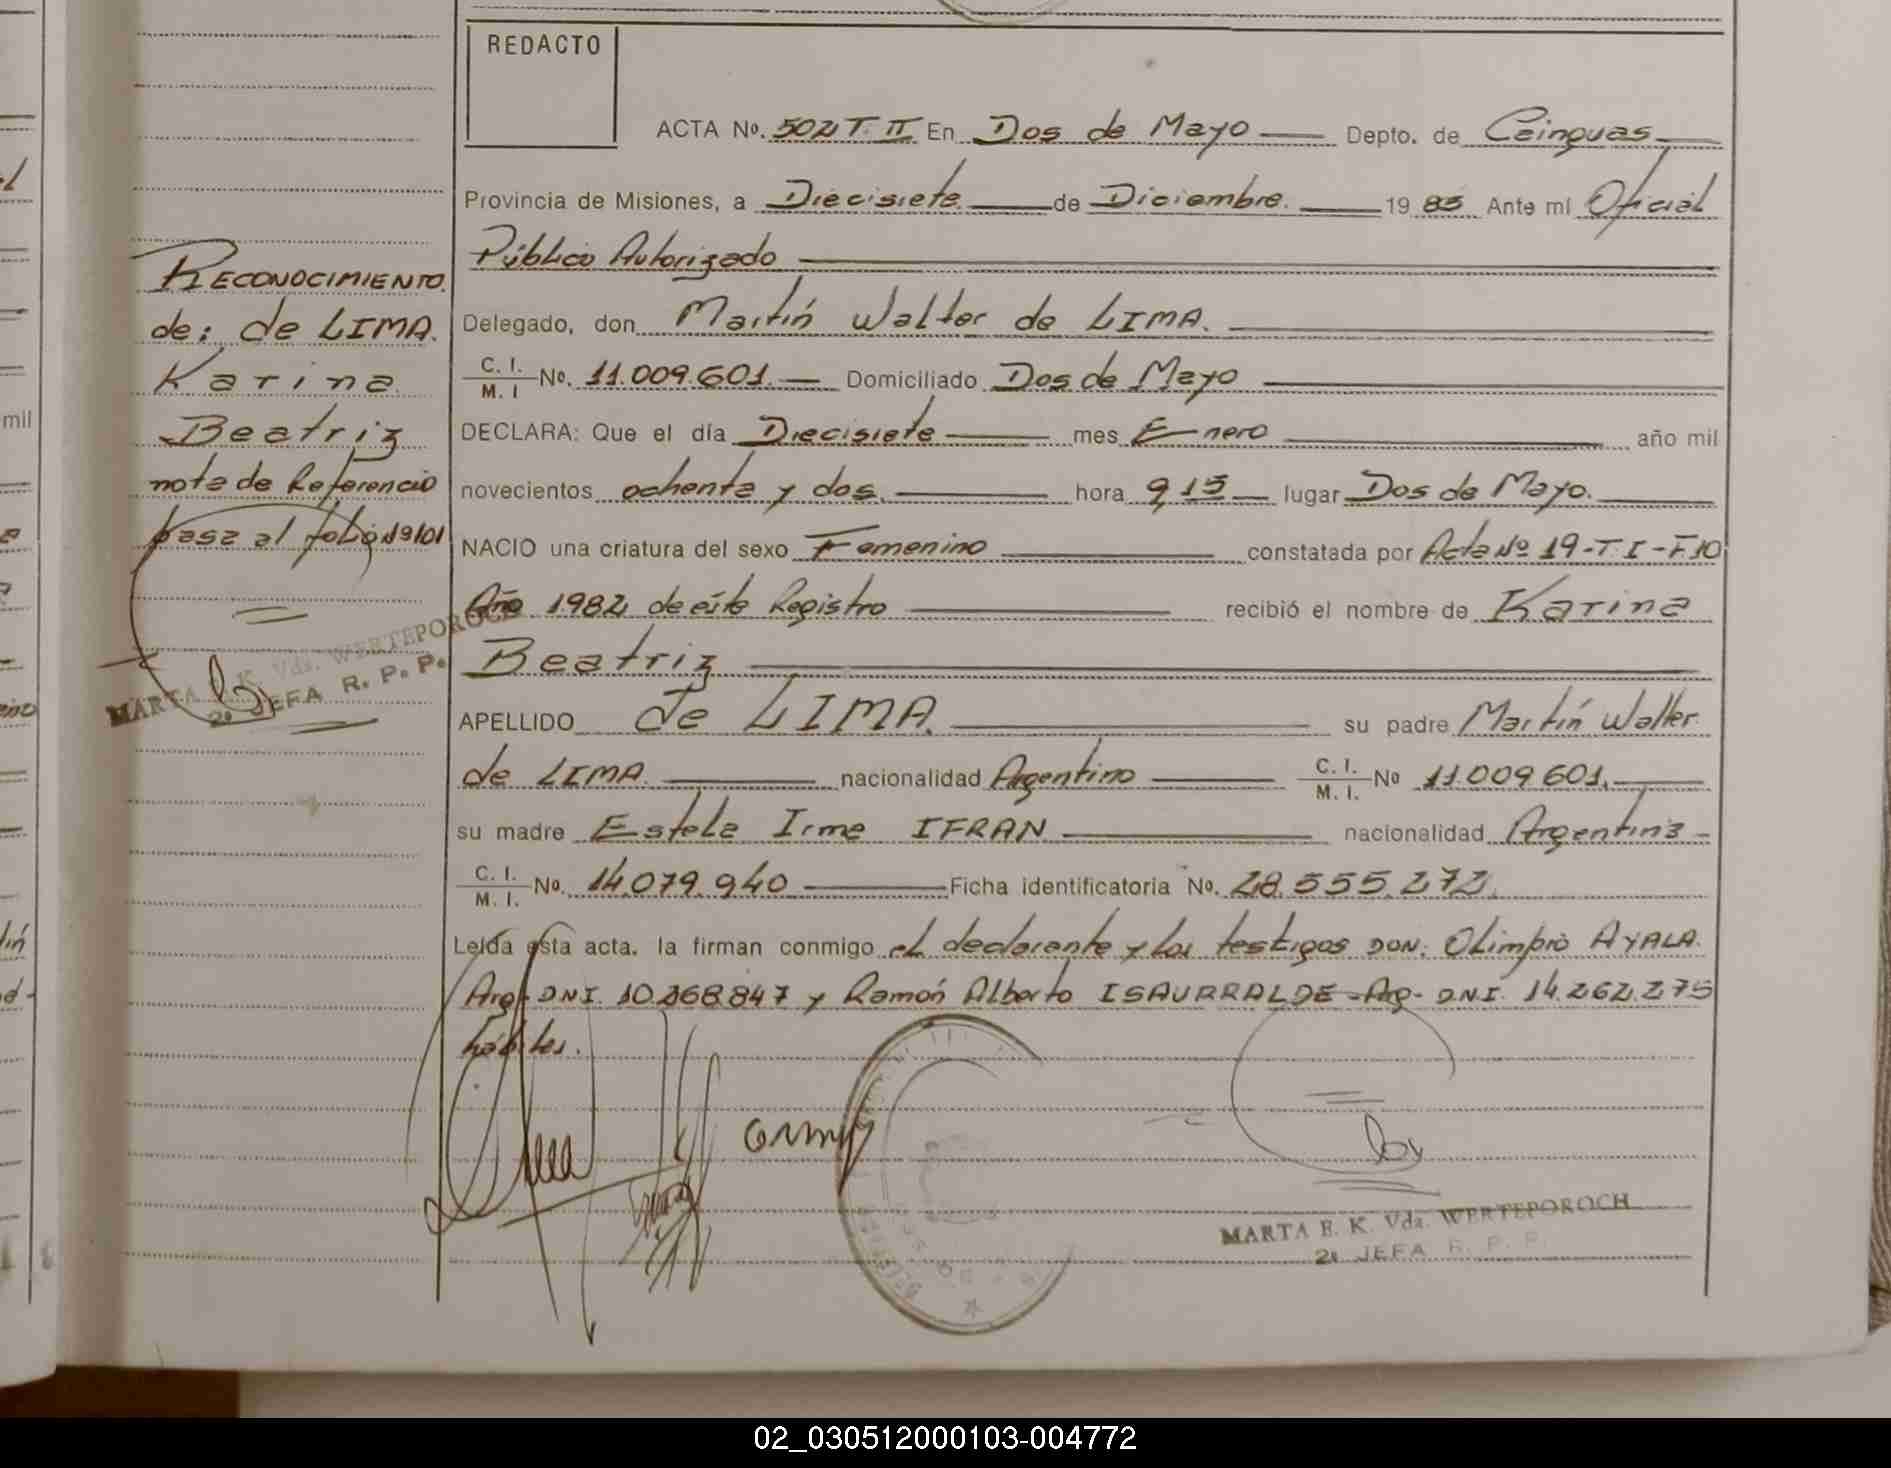 REDACTO
ACTA No. 502 T. II En Dos de Mayo Depto. de Cainguas
Provincia de Misiones, a Diecisiete de Diciembre. 19 85 Ante mi Oficial
Público Autorizado
Delegado, don Martín Walter de LIMA.
C. I. / M. I No. 11.009.601. Domiciliado Dos de Mayo
DECLARA: Que el día Diecisiete mes Enero año mil
novecientos ochenta y dos. hora 9,15 lugar Dos de Mayo.
NACIO una criatura del sexo Femenino constatada por Acta Nº 19-T. I-F.10
Año 1982 de éste Registro recibió el nombre de Karina
Beatriz
APELLIDO de LIMA. su padre Martín Walter
de LIMA. nacionalidad Argentino C. I. / M. I. No 11.009.601.
su madre Estela Irma IFRAN nacionalidad Argentina
C. I. / M. I. No. 14.079.940 Ficha identificatoria No. 28.555.272.
Leída esta acta, la firman conmigo el declarante y los testigos DON: Olimpio AYALA.
Arg. DNI. 10.268.847 y Ramón Alberto ISAURRALDE-Arg- DNI. 14.262.275
hábiles.
RECONOCIMIENTO
de: de LIMA.
Karina
Beatriz
nota de Referencia
pasa al folio 19/01
MARTA E. K. Vda. WERTEPOROCH
2a JEFA R. P. P.
MARTA E. K. Vda. WERTEPOROCH
2a JEFA R. P. P.
mil
02_030512000103-004772